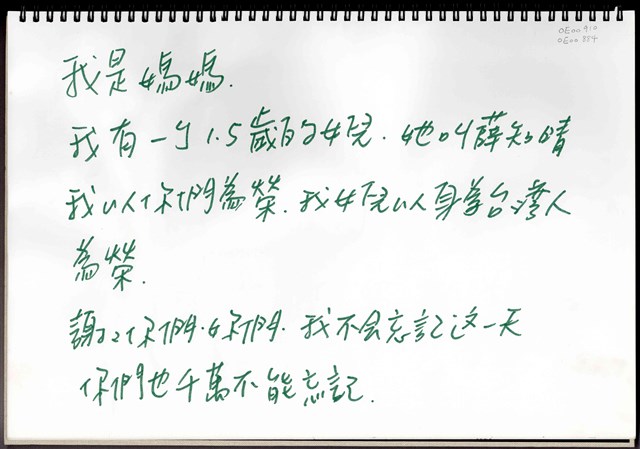 OE00910
OE00884
我是媽媽.
我有一个1.5歲的女兒.她叫薛知晴
我以你們為榮.我女兒以身為台灣人
為榮.
謝謝你們.妳們.我不会忘記这一天
你們也千萬不能忘記.